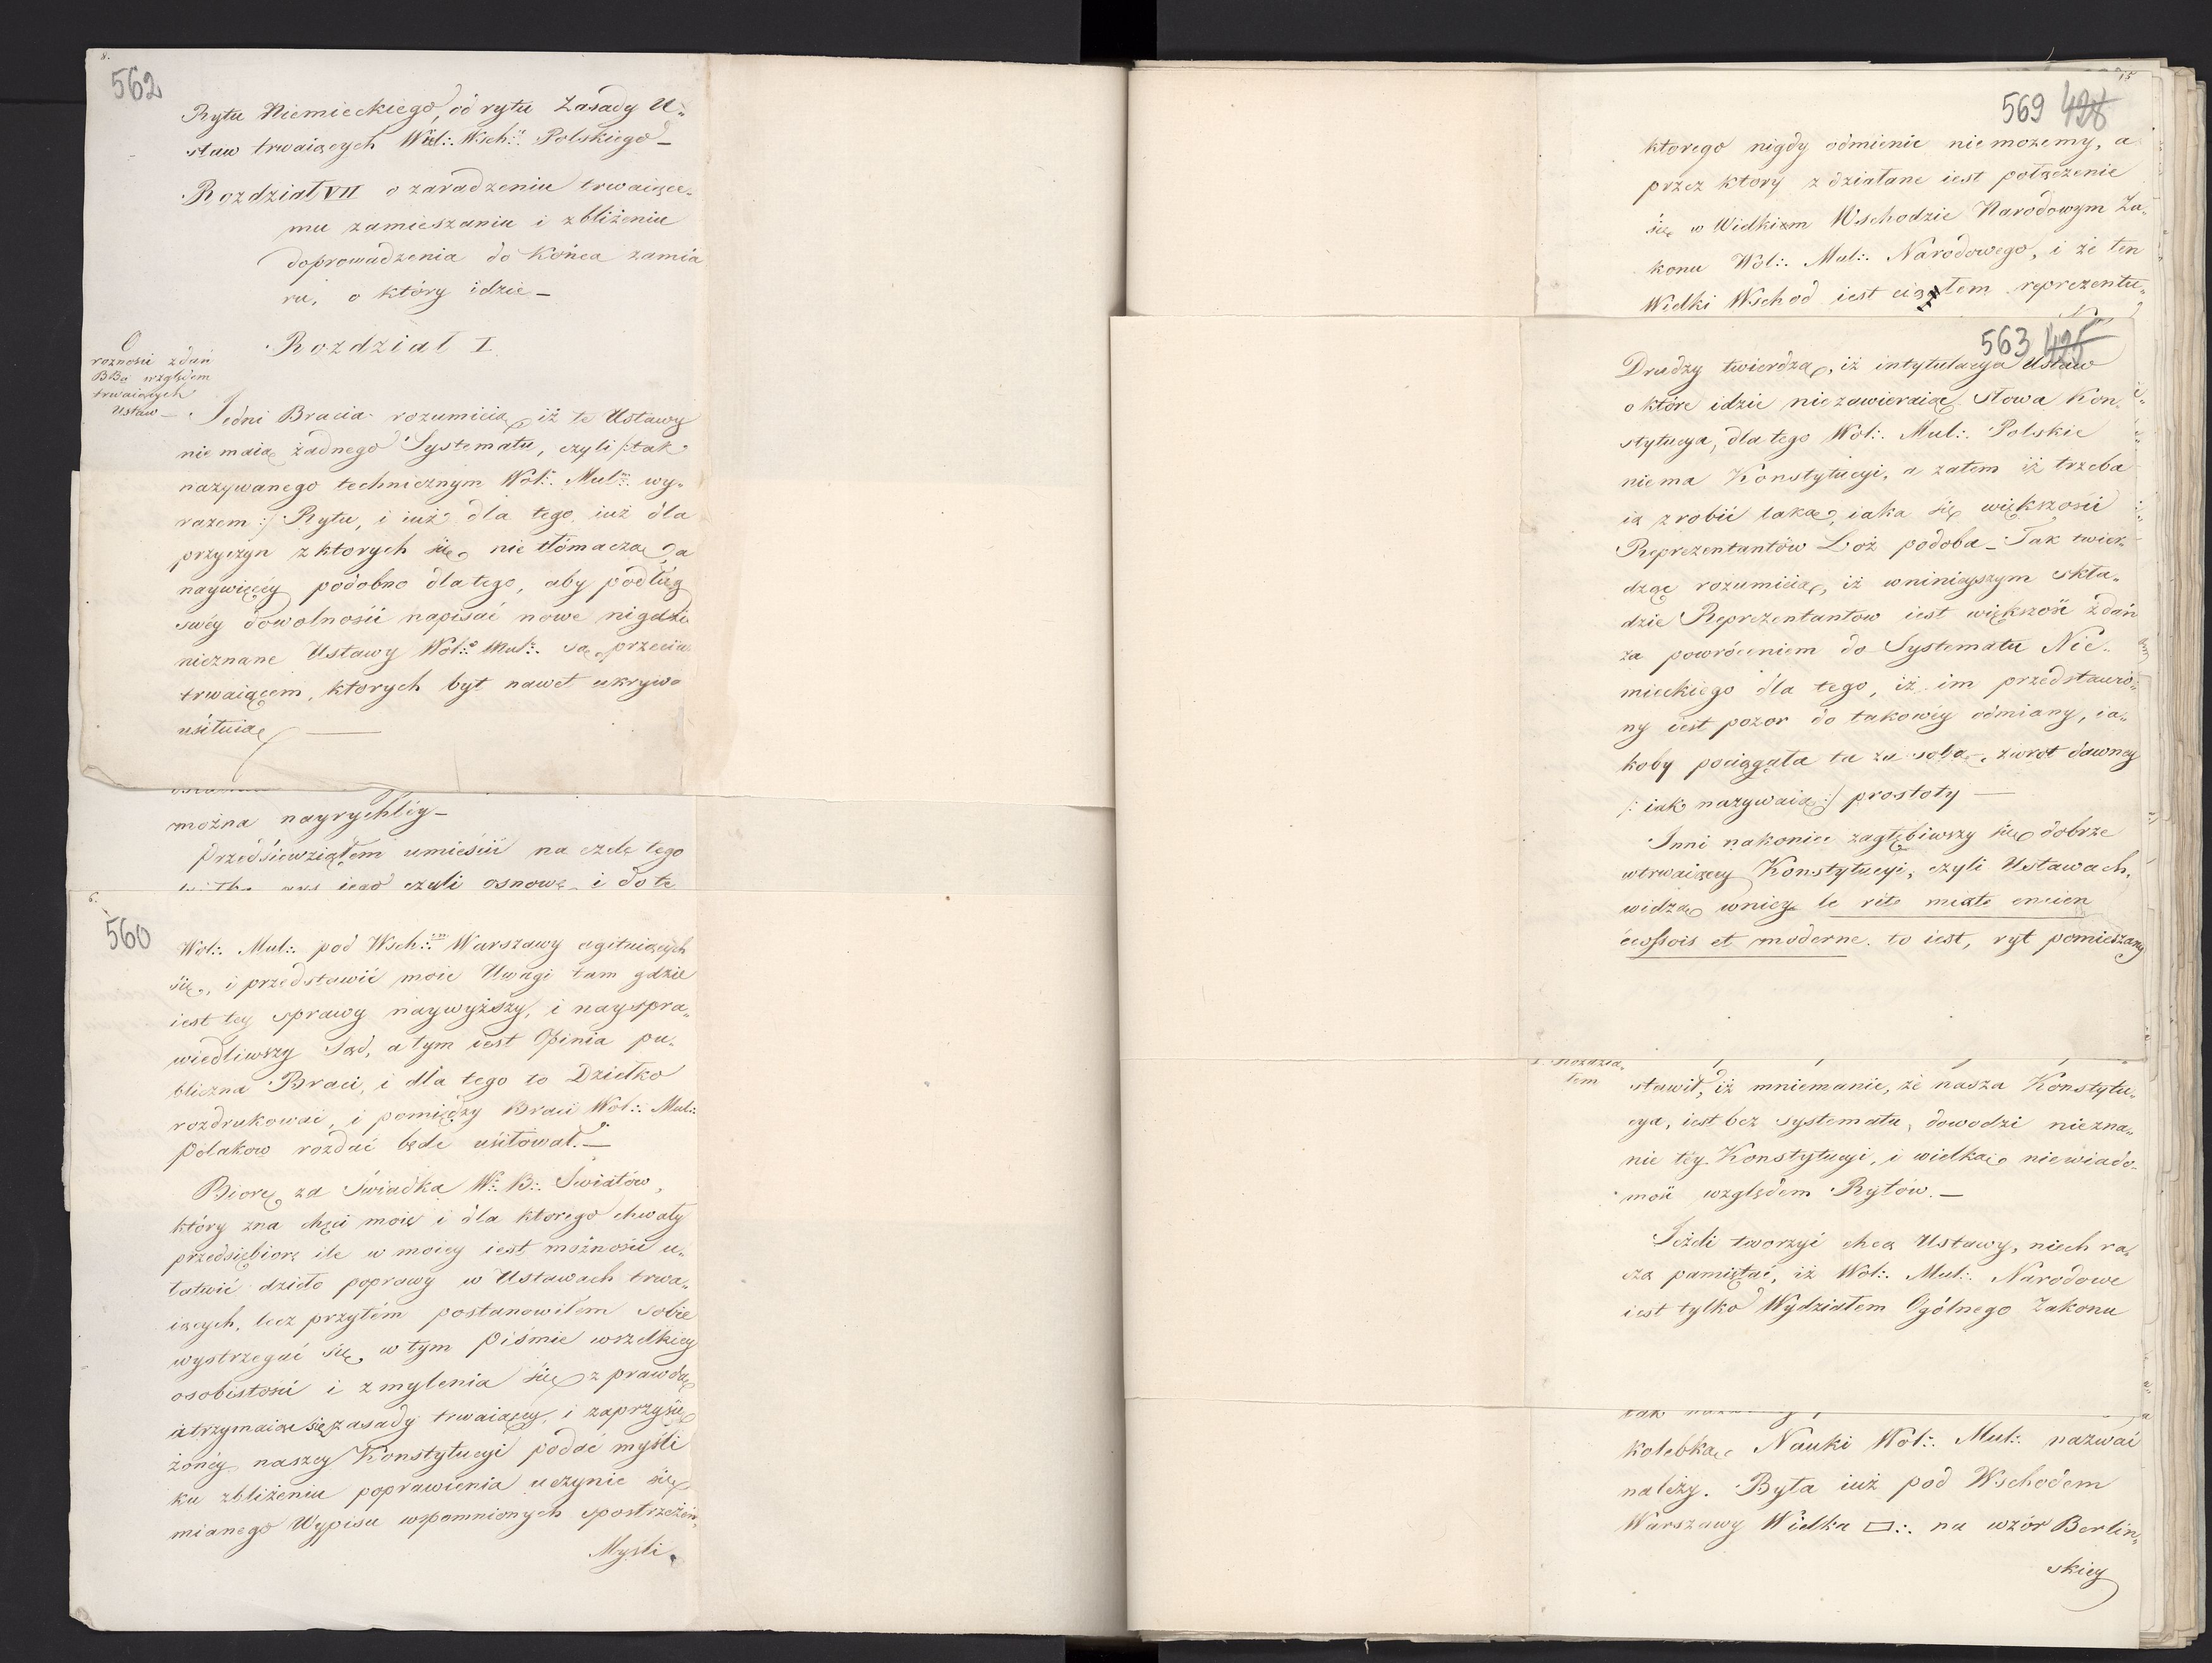 8.
562
Rytu Niemieckiego, od rytu Zasady U„
staw trwaiących Wiel∴ Wsch∴ Polskiego —
Rozdział VII o zaradzeniu trwaiące„
mu zamieszaniu i zbliżeniu
doprowadzenia do końca zamia
ru, o który idzie —
Rozdział I.
O
rożnosci zdań
BBci względem
trwaiących
Ustaw —
Jedni Bracia rozumieią, iż te Ustawy
nie maią żadnego Systematu, czyli /: tak
nazywanego technicznym Wol∴ Mul∴ wy„
razem :/ Rytu, i iuż dla tego iuż dla
przyczyn z ktorych się nie tłómaczą, a
naywięcéy podobno dla tego, aby podług
swéy dowolności napisać nowe nigdzie
nieznane Ustawy Wol∴ Mul∴ są przeciw
trwaiącem, ktorych byt nawet ukrywa
usiłuią —
można nayrychléy —
Przedsięwziąłem umieścić na czele tego
czyli osnowę i do te
6.
560
Wol∴ Mul∴ pod Wsch∴em Warszawy agituiących
się, i przedstawić moie Uwagi tam gdzie
iest tey sprawy naywyższy, i nayspra„
wiedliwszy Sąd, a tym iest Opinia pu„
bliczna Braci, i dla tego to Dziełko
rozdrukować, i pomiędzy Braci Wol∴ Mul∴
Polakow rozdać będe usiłował. —
Biorę za Świadka W∴ B∴ Światów,
który zna chęci moie i dla ktorego chwały
przedsiębiorę ile w moiey iest możności u„
łatwić dzieło poprawy w Ustawach trwa„
iących, lecz przytém postanowiłem sobie
wystrzegać się w tym Piśmie wszelkiey
osobistości i zmylenia się z prawdą
i trzymaiąc się zasady trwaiącey, i zaprzysię
żonéy naszey Konstytucyi podać myśli
ku zbliżeniu poprawienia uczynić się
mianego Wypisu wspomnionych spostrzeżeń„
Myśli.
15
569 428
ktorego nigdy odmienić nie możemy, a
przez ktory zdziałane iest połączenie
się w Wielkiem Wschodzie Narodowym Za„
konu Wol∴ Mul∴ Narodowego, i że ten
Wielki Wschod iest ciałem reprezentu„
563 425
Drudzy twierdzą, iż intytulacya Ustaw
o które idzie nie zawieraiąc słowa Kon„
stytucya, dla tego Wol∴ Mul∴ Polskie
niema Konstytucyi, a zatem iż trzeba
ią zrobić taką, iaka się większości
Reprezentantów Loż podoba — Tak twier„
dząc rozumieią, iż w niniejszym skła„
dzie Reprezentantow iest większość zdań
za powróceniem do Systematu Nie„
mieckiego dla tego, iż im przedstawio„
ny iest pozor do takowéy odmiany, ia„
koby pociągała ta za sobą zwrot dawney
/: iak nazywaią :/ prostoty —
Inni nakoniec zagłębiwszy się dobrze
w trwaiącey Konstytucyi, czyli Ustawach,
widzą w niey le rite mixte encien
écossois et moderne. to iest, ryt pomieszany
1. Rozdzia„
łem
stawił, iż mniemanie, że nasza Konstytu„
cya, iest bez systematu, dowodzi niezna„
nie téy Konstytucyi, i wielką niewiado„
mość względem Rytów. —
Jeżeli tworzyć chcą Ustawy, niech ra„
czą pamiętać, iż Wol∴ Mul∴ Narodowe
iest tylko Wydziałem Ogólnego Zakonu
kolebką Nauki Wol∴ Mul∴ nazwać
należy. Była iuż pod Wschodem
Warszawy Wielka ▭∴ na wzór Berlin„
skiey